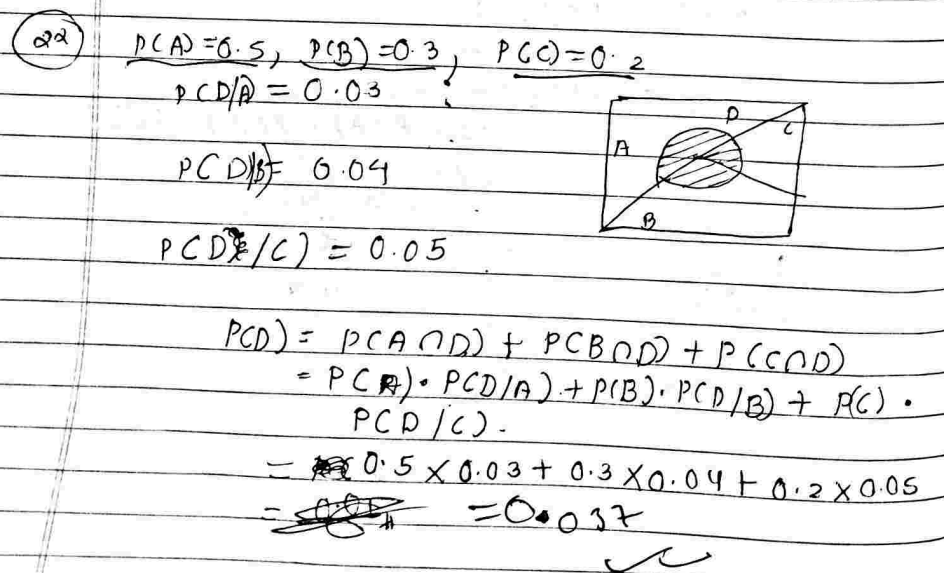 22 P(A) = 0.5, P(B) = 0.3, P(C) = 0.2
P(D/A) = 0.03
P(D/B) = 0.04
P(D/C) = 0.05
D
C
A
B
P(D) = P(A∩D) + P(B∩D) + P(C∩D)
= P(A) • P(D/A) + P(B). P(D/B) + P(C) •
P(D/C).
= 0.5 × 0.03 + 0.3 × 0.04 + 0.2 × 0.05
= = 0.037